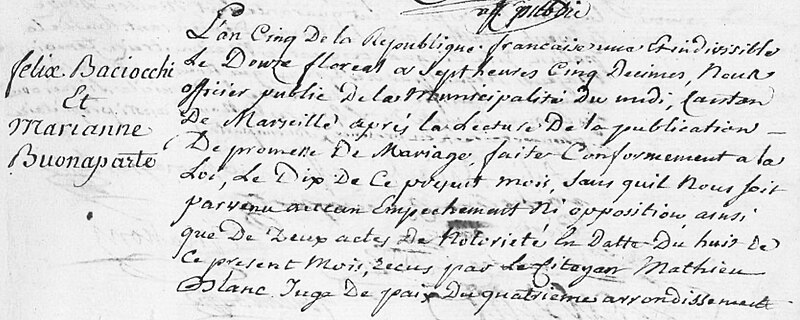 off. public
L'an Cinq De la Republique francaise une Et indivisible
felix Baciocchi
Et
Marianne
Buonaparte
Le Douze floreal a Sept heures Cinq Decimes, Nous
officier public De la Municipalité Du midi, Canton
De Marseille aprés la Lecture De la publication
De promesse De Mariage, faite Conformement a la
Loi, Le Dix De Ce present mois, Sans quil Nous soit
parvenu aucun Empechement Ni opposition ainsi
que De Deux actes De Notorieté En Datte Du huit de
Ce present Mois, recus par Le Citoyen Mathieu
Blanc Juge De paix Du quatrieme arrondissement